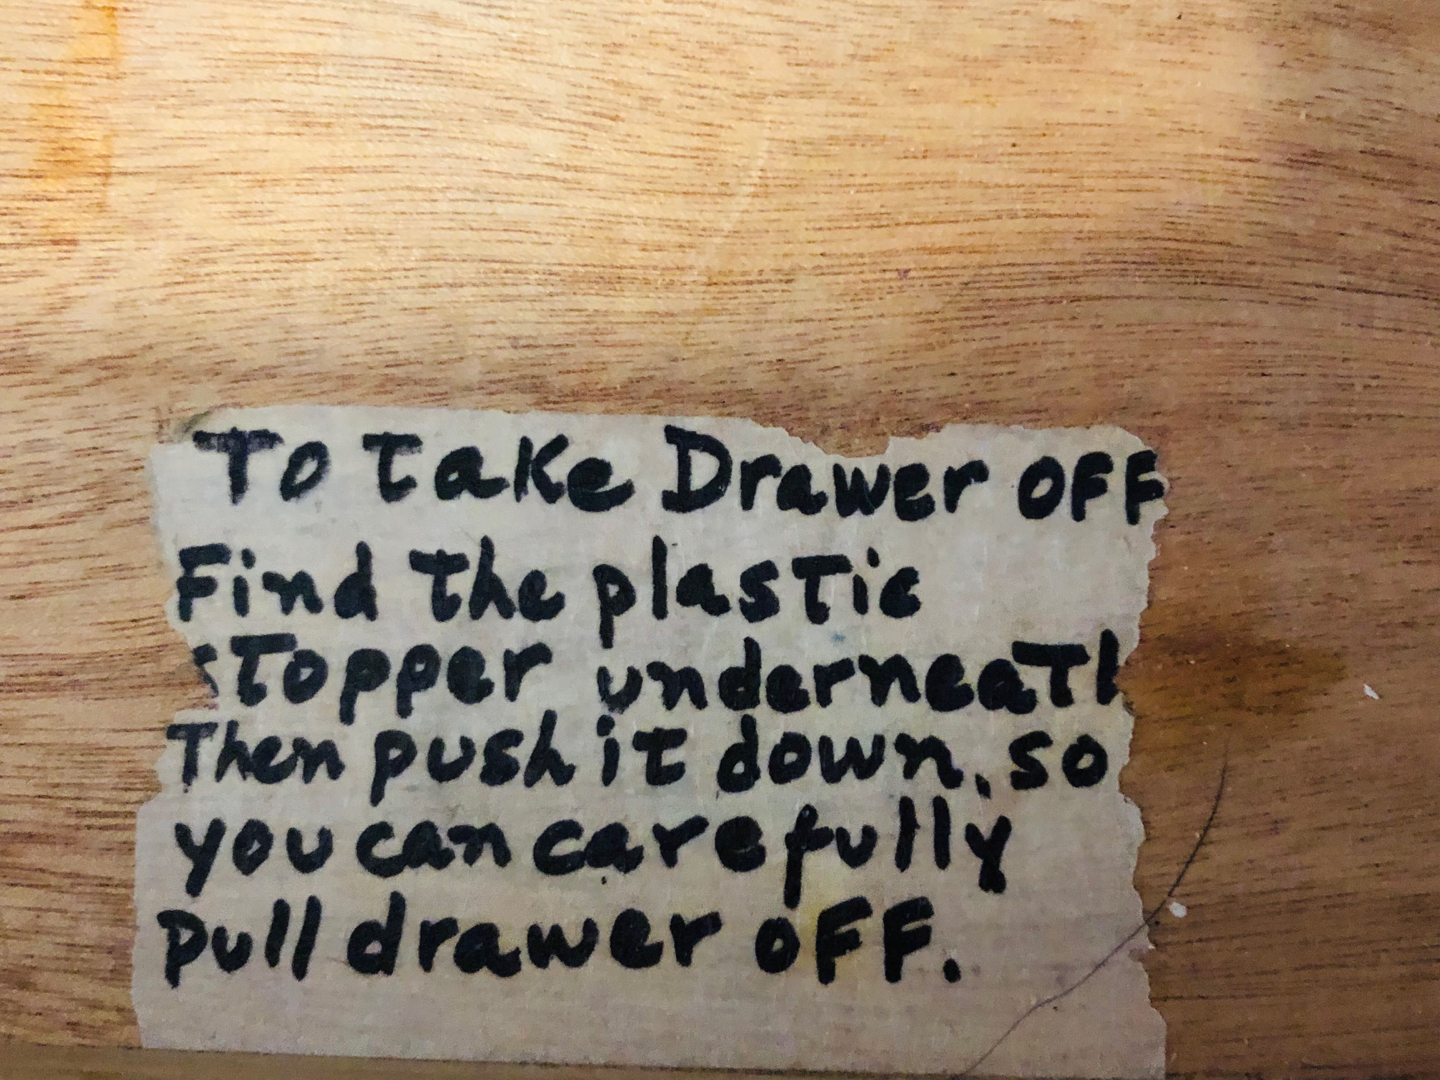 To take Drawer OFF
Find the plastic
stopper underneath
Then push it down, so
you can carefully
pull drawer OFF.